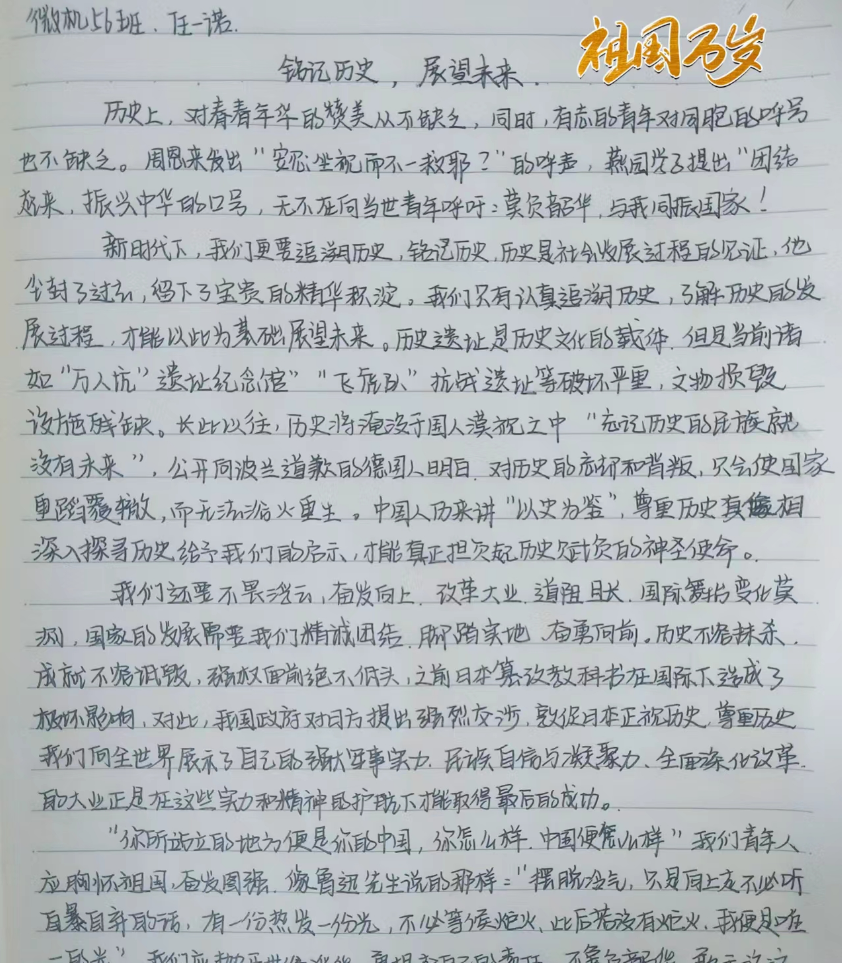 微机56班. 任一诺.
祖国万岁
铭记历史，展望未来.
历史上，对青青年华的赞美从不缺乏，同时，有志的青年对同胞的呼号
也不缺乏。周恩来发出“安忍坐视而不一救耶？”的呼声，燕园学子提出“团结
起来，振兴中华的口号，无不在向当世青年呼吁：莫负韶华，与我同振国家！
新时代下，我们更要追溯历史，铭记历史，历史是社会发展过程的见证，他
尘封了过去，留下了宝贵的精华积淀。我们只有认真追溯历史，了解历史的发
展过程，才能以此为基础展望未来。历史遗址是历史文化的载体，但是当前诸
如“万人坑”遗址纪念馆”“飞虎队”抗战遗址等破坏严重，文物损毁
设施残缺。长此以往，历史将淹没于国人漠视之中“忘记历史的民族就
没有未来”，公开向波兰道歉的德国人明白，对历史的忘却和背叛，只会使国家
重蹈覆辙，而无法浴火重生。中国人历来讲“以史为鉴”，尊重历史真相
深入探寻历史给予我们的启示，才能真正担负起历史赋负的神圣使命。
我们还要不畏浮云，奋发向上．改革大业．道阻且长．国际舞台变化莫
测，国家的发展需要我们精诚团结．脚踏实地．奋勇向前。历史不容抹杀．
成就不容诋毁，强权面前绝不低头，之前日本篡改教科书在国际下造成了
极坏影响，对此，我国政府对日方提出强烈交涉，敦促日本正视历史，尊重历史
我们向全世界展示了自己的强大军事实力．民族自信与凝聚力、全面深化改革．
的大业正是在这些实力和精神的护航下才能取得最后的成功。
“你所站立的地方便是你的中国，你怎么样．中国便怎么样”我们青年人
应胸怀祖国，奋发图强．像鲁迅先生说的那样：“摆脱冷气，只是向上走不必听
自暴自弃的话，有一份热发一份光，不必等候炬火．此后若没有炬火．我便是唯
一的光”．我们应